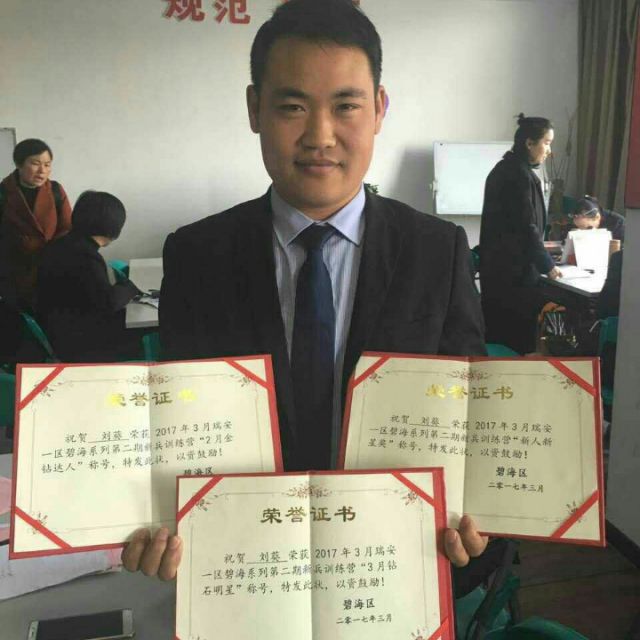 规范
荣誉证书
祝贺 刘葵 荣获 2017 年 3 月瑞安
一区碧海系列第二期新兵训练营“2 月金
钻达人”称号，特发此状，以资鼓励！
碧海区
荣誉证书
祝贺 刘葵 荣获 2017 年 3 月瑞安
一区碧海系列第二期新兵训练营“新人新
星奖”称号，特发此状，以资鼓励！
碧海区
二零一七年三月
荣誉证书
祝贺 刘葵 荣获 2017 年 3 月瑞安
一区碧海系列第二期新兵训练营“3 月钻
石明星”称号，特发此状，以资鼓励！
碧海区
二零一七年三月